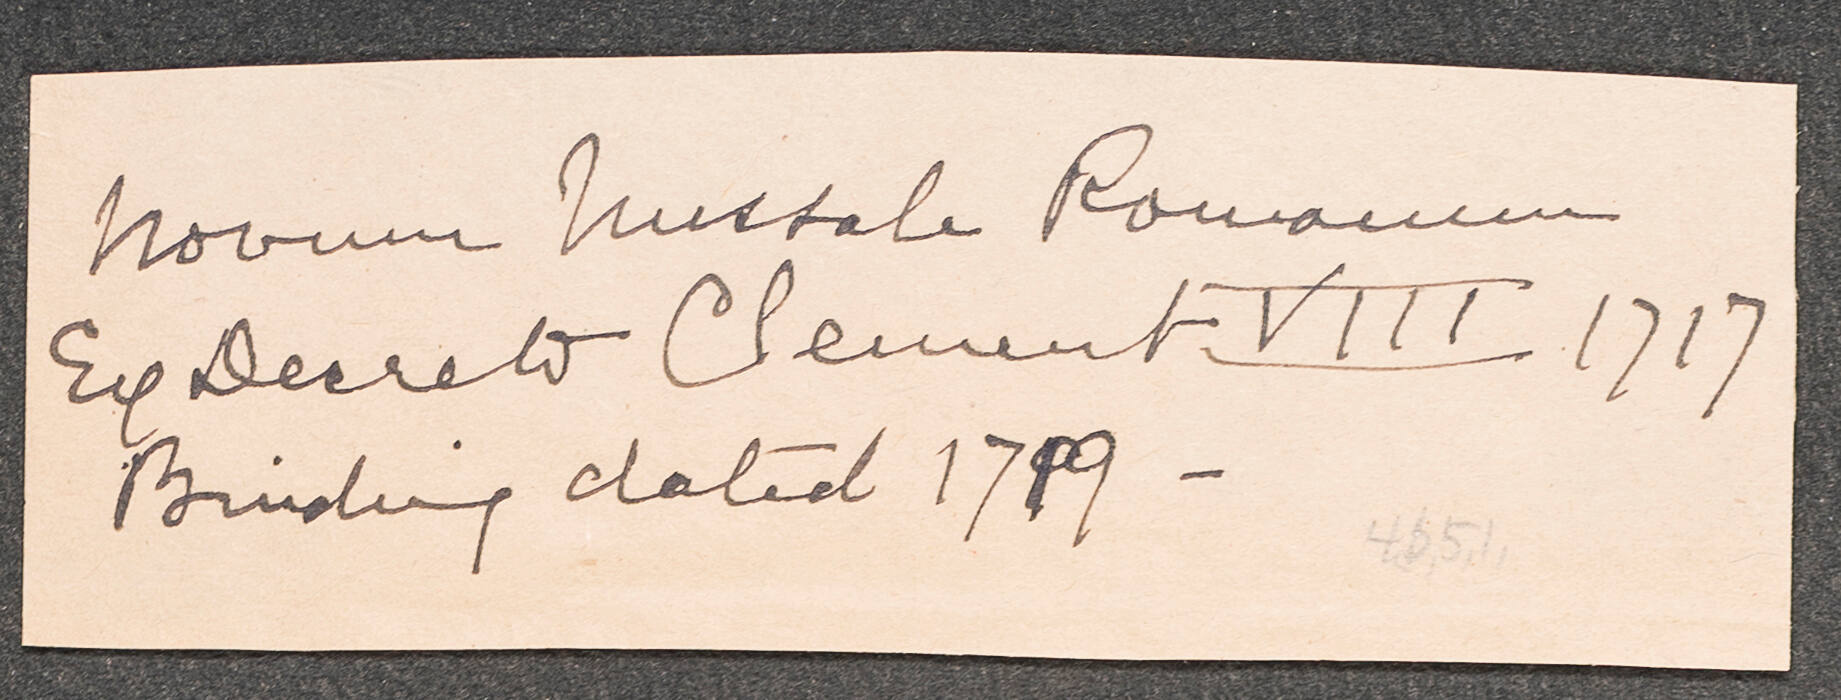 Novum Missale Romanum
Ex Decreto Clement VIII 1717
Binding dated 1719 -
4651